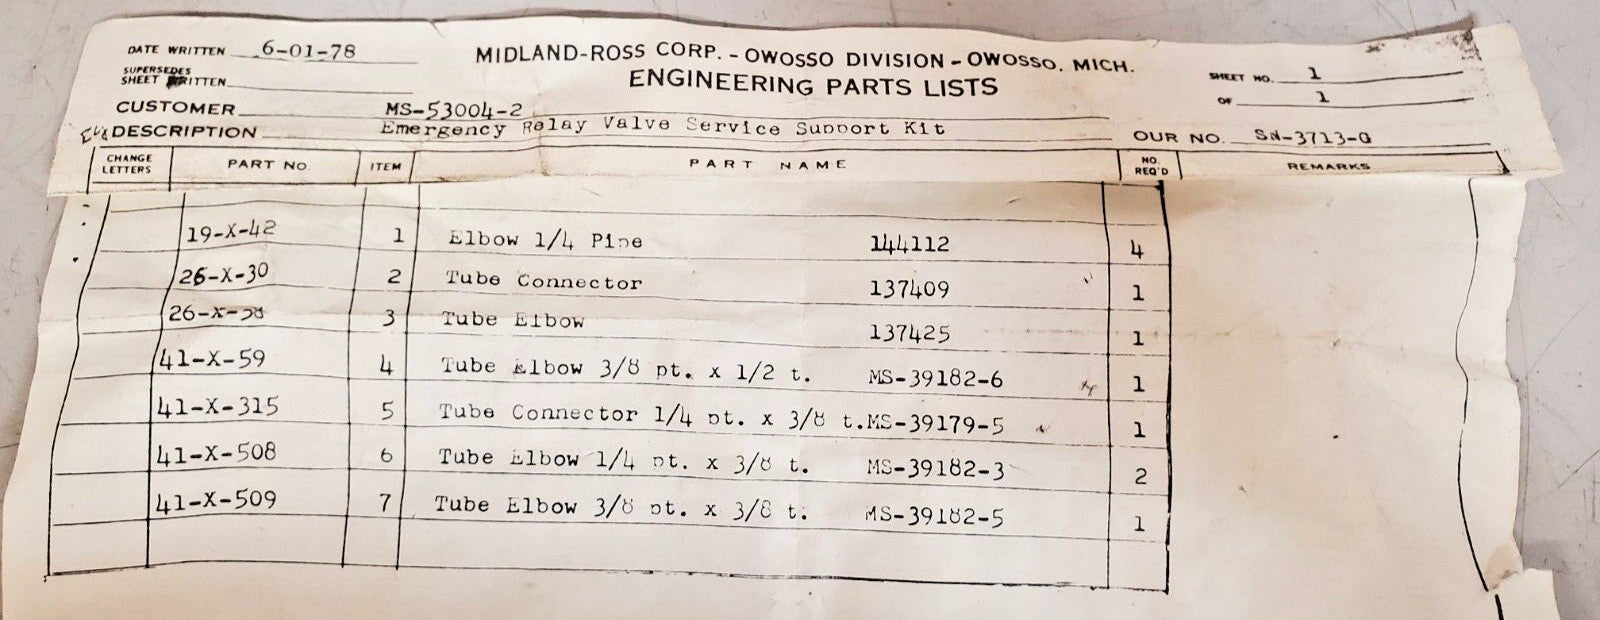 DATE WRITTEN 6-01-78
MIDLAND-ROSS CORP. - OWOSSO DIVISION - OWOSSO, MICH.
SUPERSEDES
SHEET WRITTEN
ENGINEERING PARTS LISTS
SHEET NO. 1
OF 1
CUSTOMER MS-53004-2
DESCRIPTION Emergency Relay Valve Service Support Kit
OUR NO. SN-3713-Q
CHANGE LETTERS PART NO. ITEM PART NAME NO. REQ'D REMARKS
19-X-42 1 Elbow 1/4 Pipe 144112 4
26-X-30 2 Tube Connector 137409 1
3 Tube Elbow 137425 1
41-X-59 4 Tube Elbow 3/8 pt. x 1/2 t. MS-39182-6 1
41-X-315 5 Tube Connector 1/4 pt. x 3/8 t. MS-39179-5 1
41-X-508 6 Tube Elbow 1/4 pt. x 3/8 t. MS-39182-3 2
41-X-509 7 Tube Elbow 3/8 pt. x 3/8 t. MS-39182-5 1